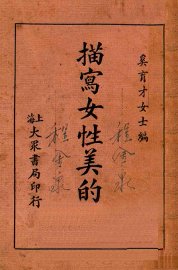 吳育才女士編
描寫女性美的
上海大眾書局印行